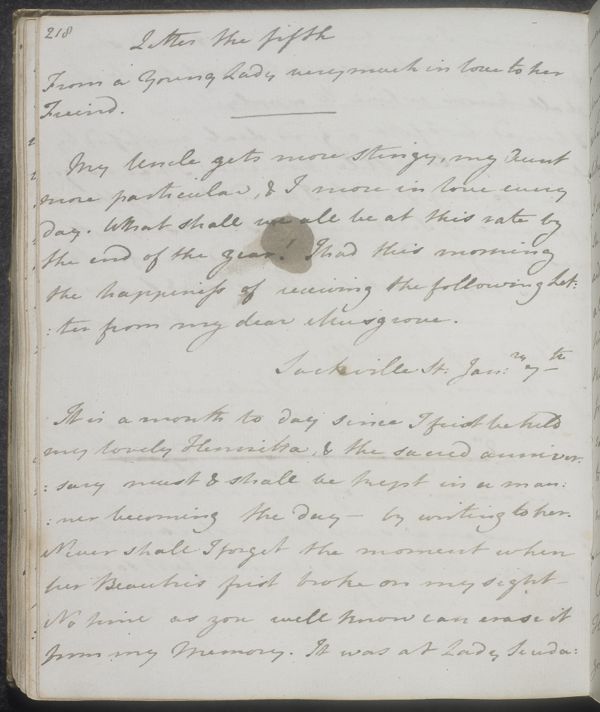 218
Letter the fifth
From a Young Lady very much in love to her
Freind.
My Uncle gets more stingy, my Aunt
more particular, & I more in love every
day. What shall we all be at this rate by
the end of the year! I had this morning
the happiness of receiving the following Let:
:ter from my dear Musgrove.
Sackville St. Janry 7th
It is a month to day since I first beheld
my lovely Henrietta, & the sacred anniver:
:sary must & shall be kept in a man:
:ner becoming the day — by writing to her.
Never shall I forget the moment when
her Beauties first broke on my sight —
No time as you well know can erase it
from my Memory. It was at Lady Scuda: